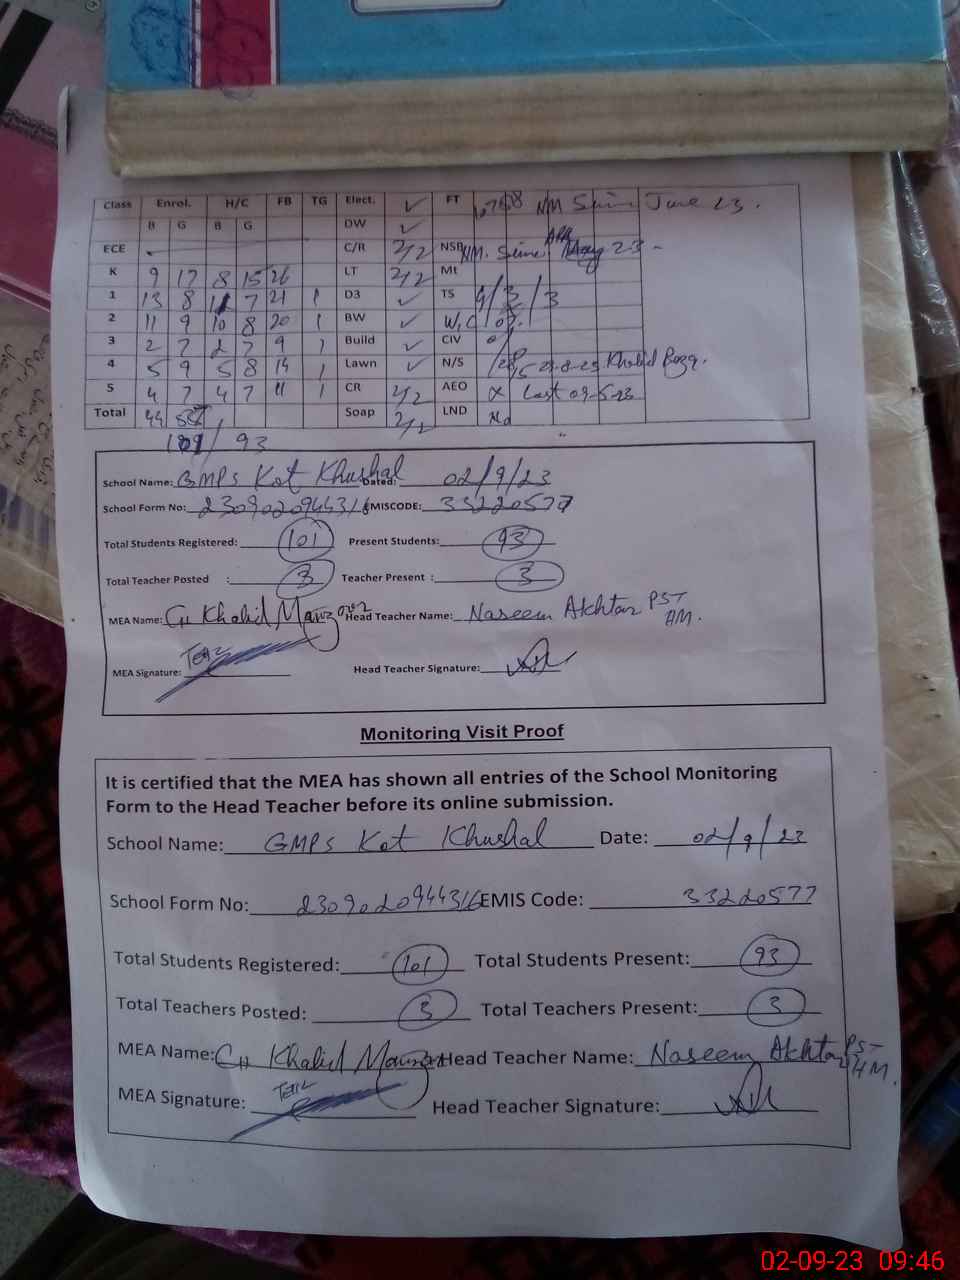 Class Enrol. H/C FB TG Elect. ✓ FT NM Sime June 23.
B G B G DW ✓
ECE C/R 2/2 NSB NM. Sime 23
K 9 17 8 15 26 LT 2/2 Mt
1 13 8 7 21 1 D3 ✓ TS 9/3/3
2 11 9 10 8 20 1 BW ✓ W,C
3 2 7 2 7 9 1 Build ✓ CIV
4 5 9 5 8 14 1 Lawn ✓ N/S Khalid
5 4 7 4 7 11 1 CR 2/2 AEO x Last 09-5-23
Total 44 Soap 2/2 LND No
101/93
School Name: GMPS Kot Khushal Dated: 02/9/23
School Form No: 2309020944316 EMISCODE: 33220577
Total Students Registered: 101 Present Students: 93
Total Teacher Posted : 3 Teacher Present : 3
MEA Name: CH Khalid Head Teacher Name: Naseem Akhtar PST
HM.
MEA Signature: Head Teacher Signature:
Monitoring Visit Proof
It is certified that the MEA has shown all entries of the School Monitoring
Form to the Head Teacher before its online submission.
School Name: GMPS Kot Khushal Date: 02/9/23
School Form No: 2309020944316 EMIS Code: 33220577
Total Students Registered: 101 Total Students Present: 93
Total Teachers Posted: 3 Total Teachers Present: 3
MEA Name: CH Khalid Head Teacher Name: Naseem Akhtar PST
HM.
MEA Signature: Head Teacher Signature:
02-09-23 09:46